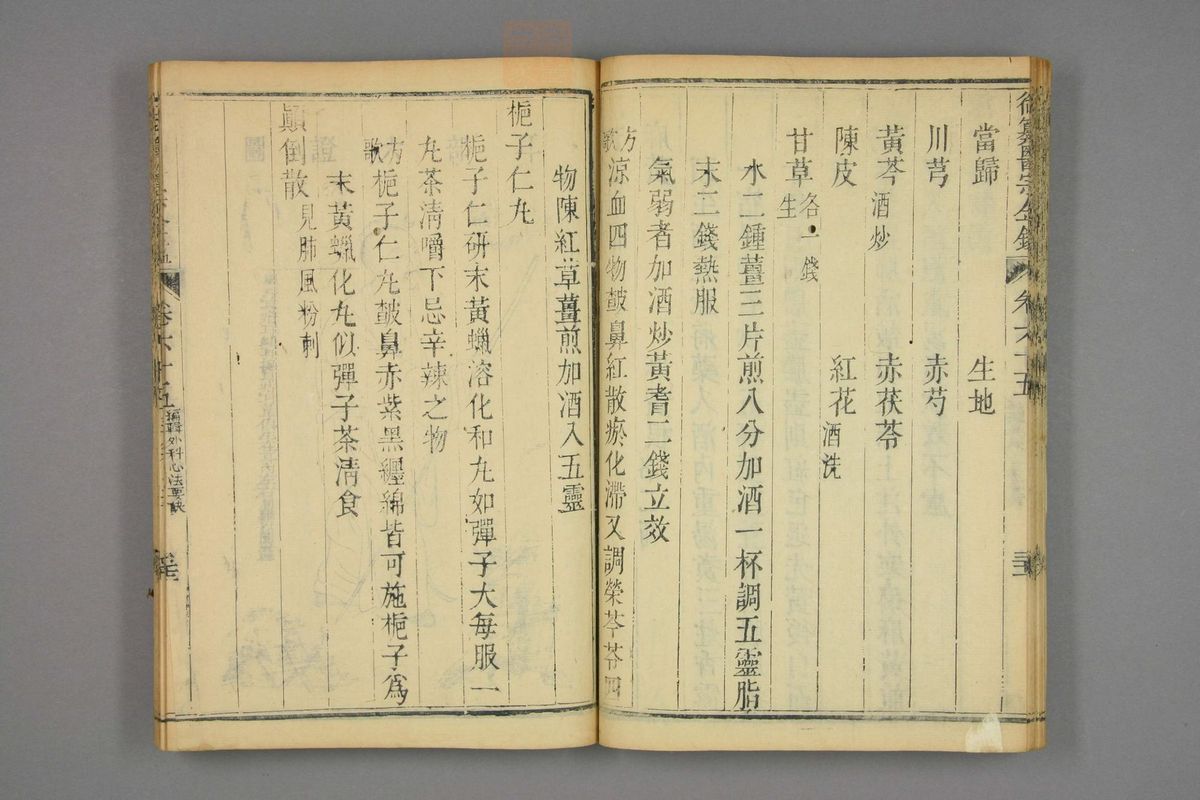 當歸 生地
川芎 赤芍
黃芩酒炒 赤茯苓
陳皮 紅花酒洗
甘草生各一錢
水二鍾薑三片煎八分加酒一杯調五靈脂
末二錢熱服
氣弱者加酒炒黃耆二錢立效
方歌涼血四物皷鼻紅散瘀化滯又調榮芩苓四
物陳紅草薑煎加酒入五靈
梔子仁丸
梔子仁研末黃蠟溶化和丸如彈子大每服一
丸茶清嚼下忌辛辣之物
方歌梔子仁丸皷鼻赤紫黑纏綿皆可施梔子爲
末黃蠟化丸似彈子茶清食
顛倒散見肺風粉刺
卷六十五
編輯外科心法要訣